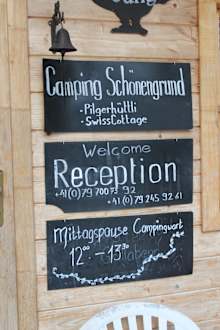 Camping Schönengrund
- Pilgerhüttli
- SwissCottage
Welcome
Reception
+41(0)79 700 73 92
+41(0)79 245 92 61
Mittagspause Campingwart
12⁰⁰ - 13³⁰